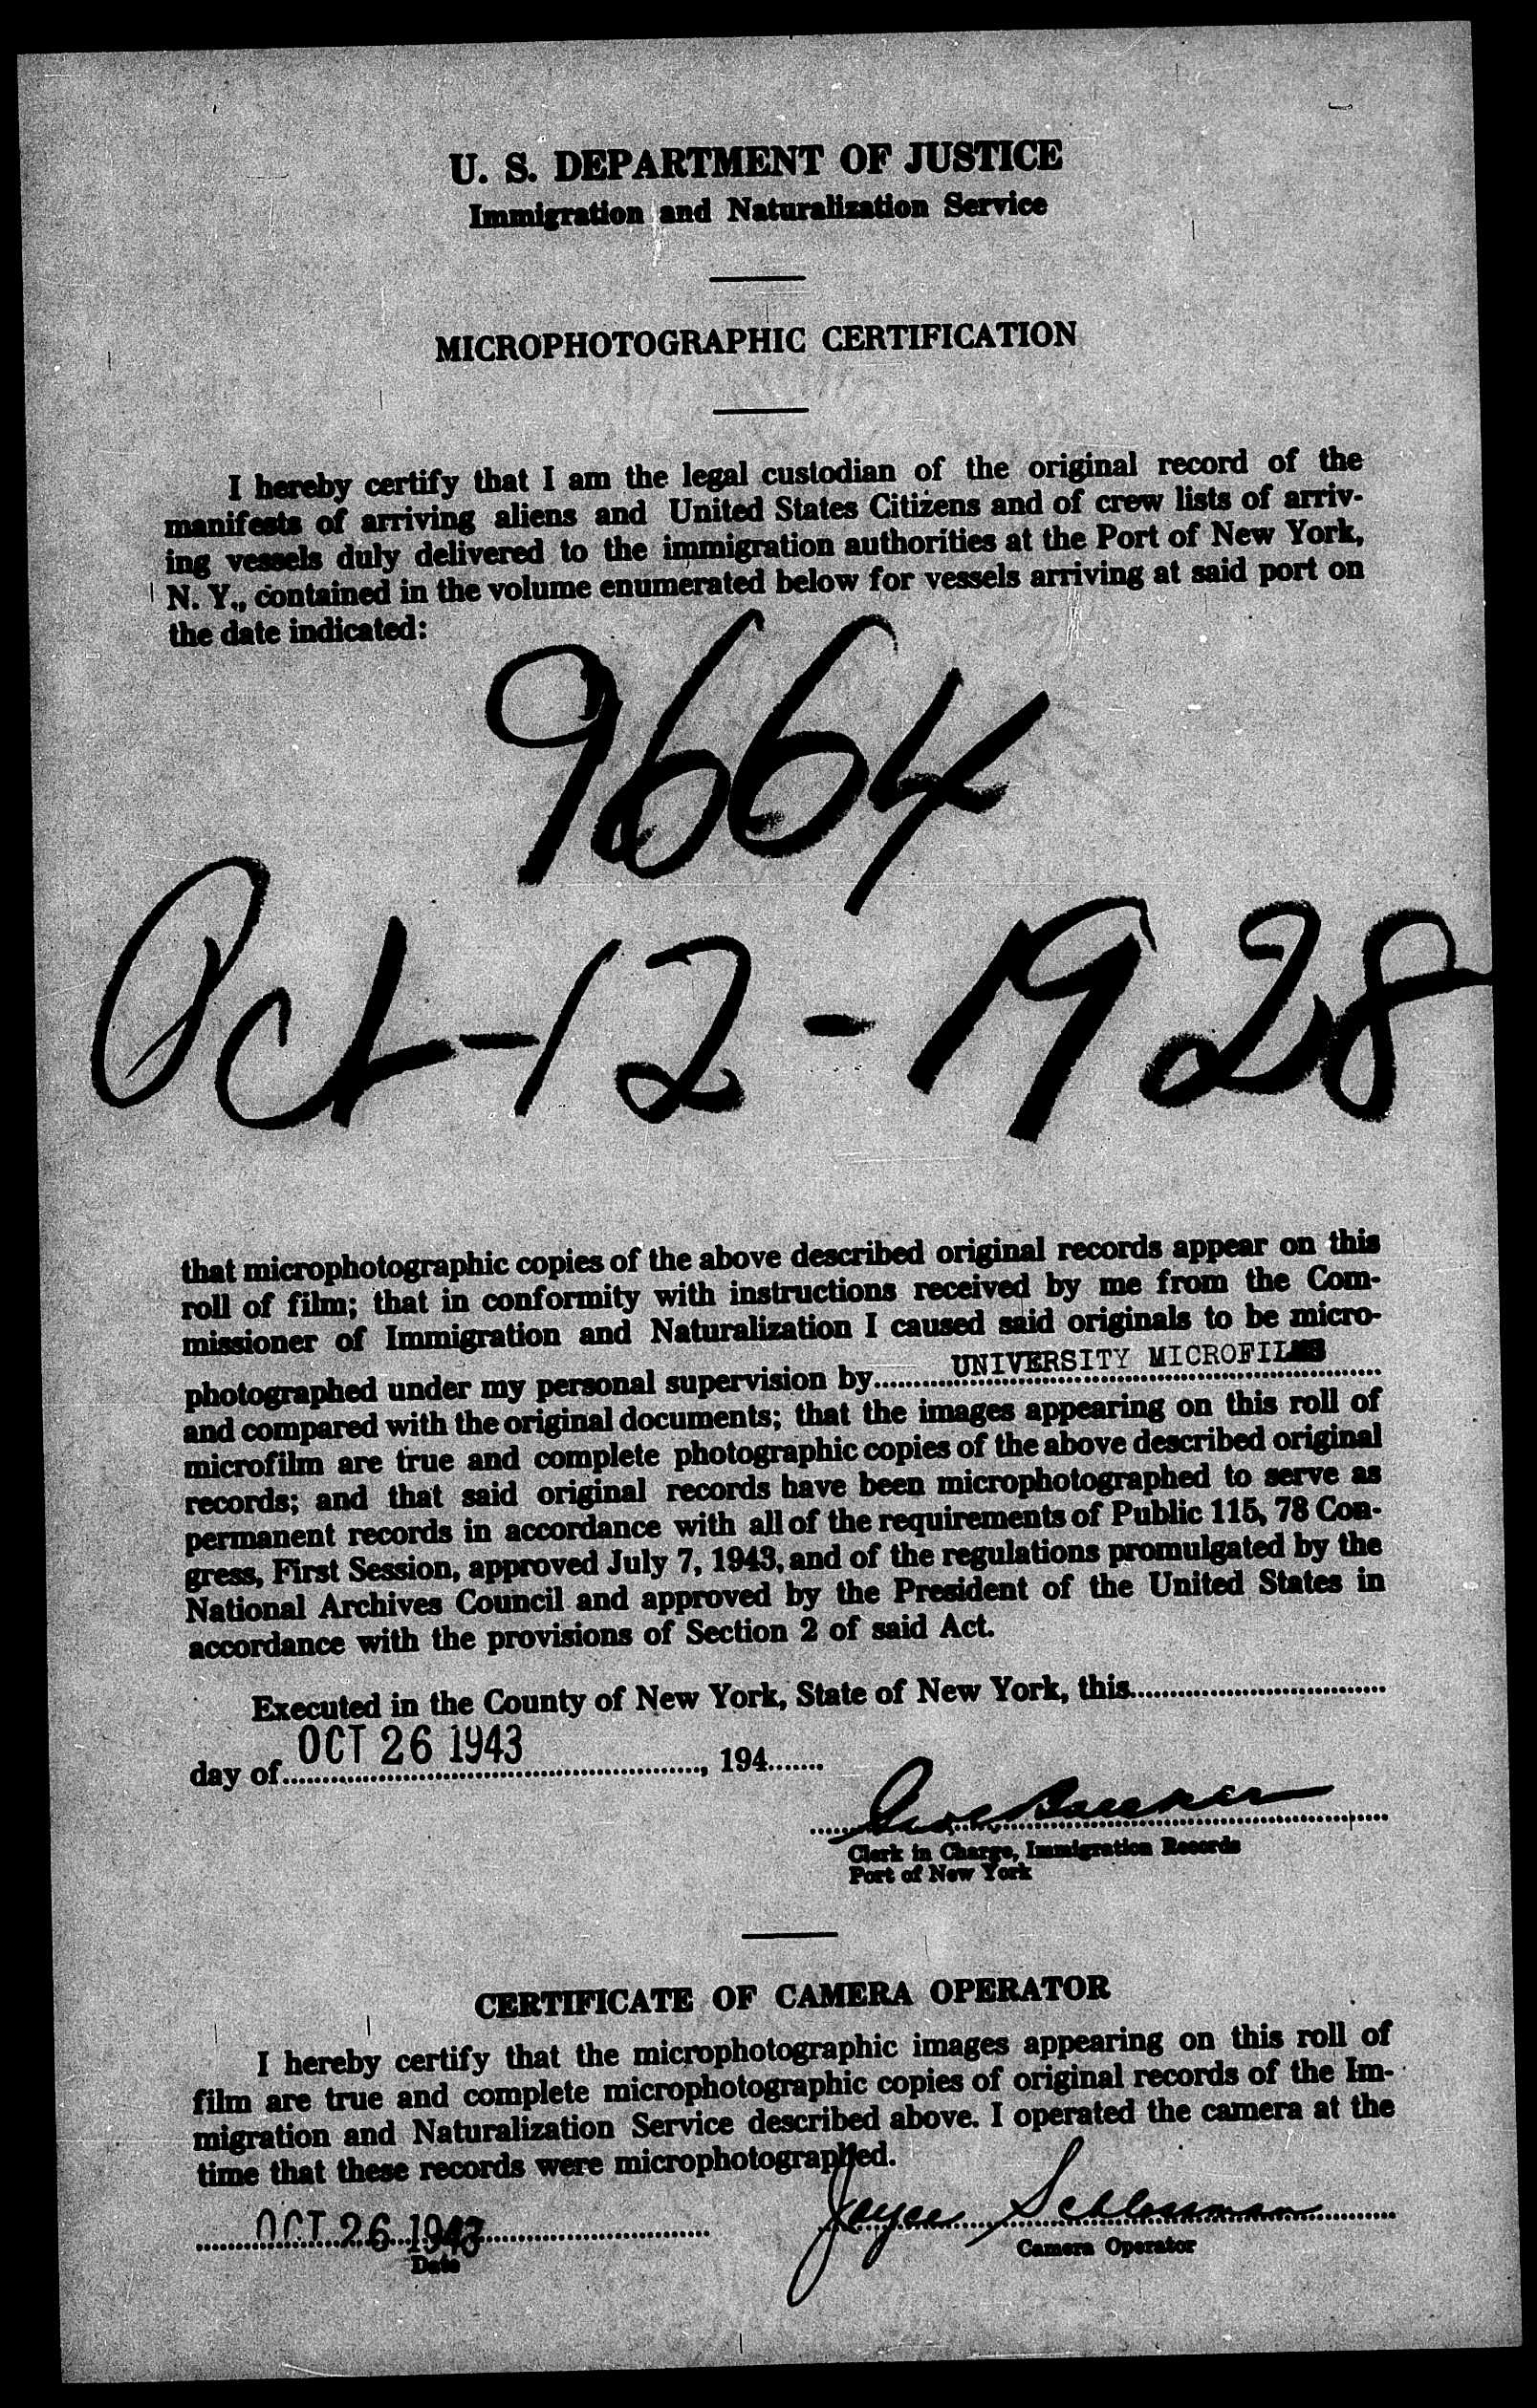 U. S. DEPARTMENT OF JUSTICE
Immigration and Naturalization Service
MICROPHOTOGRAPHIC CERTIFICATION
I hereby certify that I am the legal custodian of the original record of the
manifests of arriving aliens and United States Citizens and of crew lists of arriv-
ing vessels duly delivered to the immigration authorities at the Port of New York,
N. Y., contained in the volume enumerated below for vessels arriving at said port on
the date indicated:
9664
Oct-12-1928
that microphotographic copies of the above described original records appear on this
roll of film; that in conformity with instructions received by me from the Com-
missioner of Immigration and Naturalization I caused said originals to be micro-
photographed under my personal supervision by UNIVERSITY MICROFILMS
and compared with the original documents; that the images appearing on this roll of
microfilm are true and complete photographic copies of the above described original
records; and that said original records have been microphotographed to serve as
permanent records in accordance with all of the requirements of Public 115, 78 Con-
gress, First Session, approved July 7, 1943, and of the regulations promulgated by the
National Archives Council and approved by the President of the United States in
accordance with the provisions of Section 2 of said Act.
Executed in the County of New York, State of New York, this
day of OCT 26 1943, 194
Clerk in Charge, Immigration Records
Port of New York
CERTIFICATE OF CAMERA OPERATOR
I hereby certify that the microphotographic images appearing on this roll of
film are true and complete microphotographic copies of original records of the Im-
migration and Naturalization Service described above. I operated the camera at the
time that these records were microphotographed.
OCT 26 1943 Joyce
Date Camera Operator